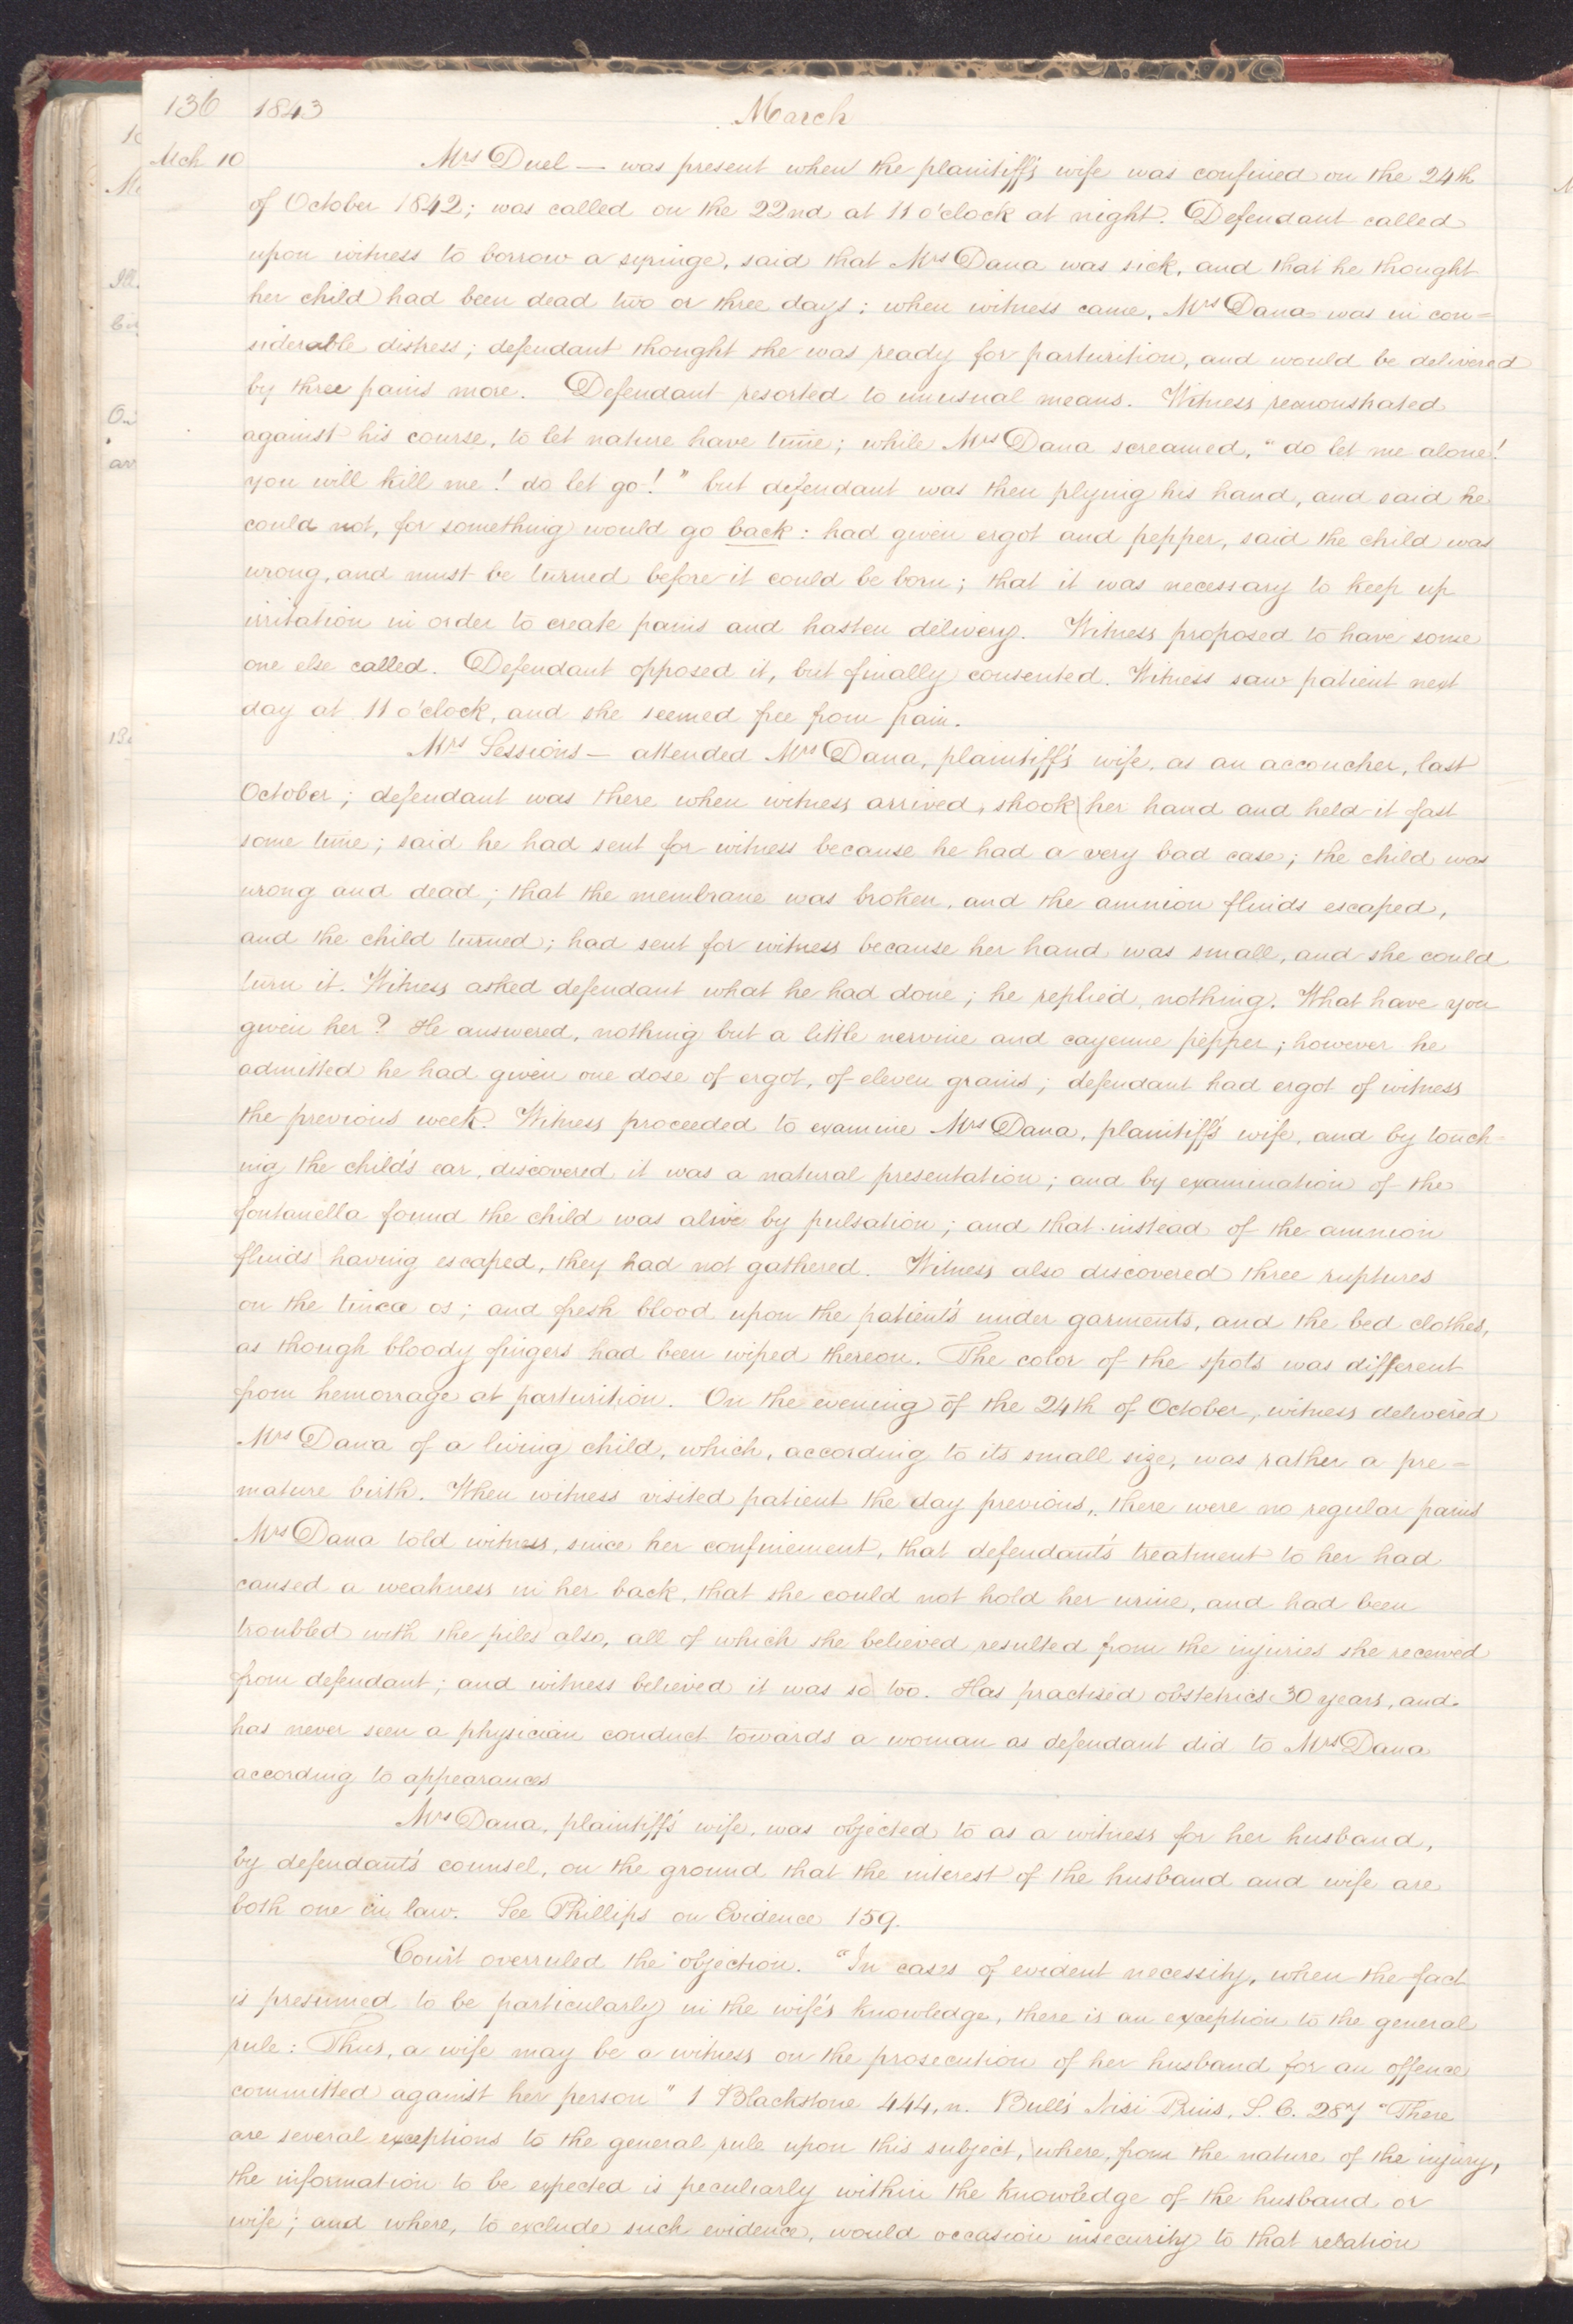 136 1843 March
Mch 10 Mrs Duel — was present when the plaintiff's wife was confined on the 24th
of October 1842; was called on the 22nd at 11 o'clock at night. Defendant called
upon witness to borrow a syringe, said that Mrs Dana was sick, and that he thought
her child had been dead two or three days; when witness came, Mrs Dana was in con=
siderable distress; defendant thought she was ready for parturition, and would be delivered
by three pains more. Defendant resorted to unusual means. Witness remonstrated
against his course, to let nature have time; while Mrs Dana screamed, "do let me alone!
you will kill me! do let go!" but defendant was then plying his hand, and said he
could not, for something would go back: had given ergot and pepper, said the child was
wrong, and must be turned before it could be born; that it was necessary to keep up
irritation in order to create pains and hasten delivery. Witness proposed to have some
one else called. Defendant opposed it, but finally consented. Witness saw patient next
day at 11 o'clock, and she seemed free from pain.
Mrs Sessions — attended Mrs Dana, plaintiff's wife, as an accoucher, last
October; defendant was there when witness arrived, shook her hand and held it fast
some time; said he had sent for witness because he had a very bad case; the child was
wrong and dead; that the membrane was broken, and the amnion fluids escaped,
and the child turned; had sent for witness because her hand was small, and she could
turn it. Witness asked defendant what he had done; he replied, nothing. What have you
given her? He answered, nothing but a little nervine and cayenne pepper; however he
admitted he had given one dose of ergot, of eleven grains; defendant had ergot of witness
the previous week. Witness proceeded to examine Mrs Dana, plaintiff's wife, and by touch=
ing the child's ear, discovered it was a natural presentation; and by examination of the
fontanella found the child was alive by pulsation; and that instead of the amnion
fluids having escaped, they had not gathered. Witness also discovered three ruptures
on the tincæ os; and fresh blood upon the patient's under garments, and the bed clothes,
as though bloody fingers had been wiped thereon. The color of the spots was different
from hemorrage at parturition. On the evening of the 24th of October, witness delivered
Mrs Dana of a living child, which, according to its small size, was rather a pre=
mature birth. When witness visited patient the day previous, there were no regular pains
Mrs Dana told witness, since her confinement, that defendant's treatment to her had
caused a weakness in her back, that she could not hold her urine, and had been
troubled with the piles also, all of which she believed resulted from the injuries she received
from defendant; and witness believed it was so too. Has practised obstetrics 30 years, and
has never seen a physician conduct towards a woman as defendant did to Mrs Dana
according to appearances
Mrs Dana, plaintiff's wife, was objected to as a witness for her husband,
by defendant's counsel, on the ground that the interest of the husband and wife are
both one in law. See Phillips on Evidence 159.
Court overruled the objection. "In cases of evident necessity, when the fact
is presumed to be particularly in the wife's knowledge, there is an exception to the general
rule: Thus, a wife may be a witness on the prosecution of her husband for an offence
committed against her person" 1 Blackstone 444, n. Bull's Nisi Prius, S. C. 287 "There
are several exceptions to the general rule upon this subject, where, from the nature of the injury,
the information to be expected is peculiarly within the knowledge of the husband or
wife; and where, to exclude such evidence, would occasion insecurity to that relation